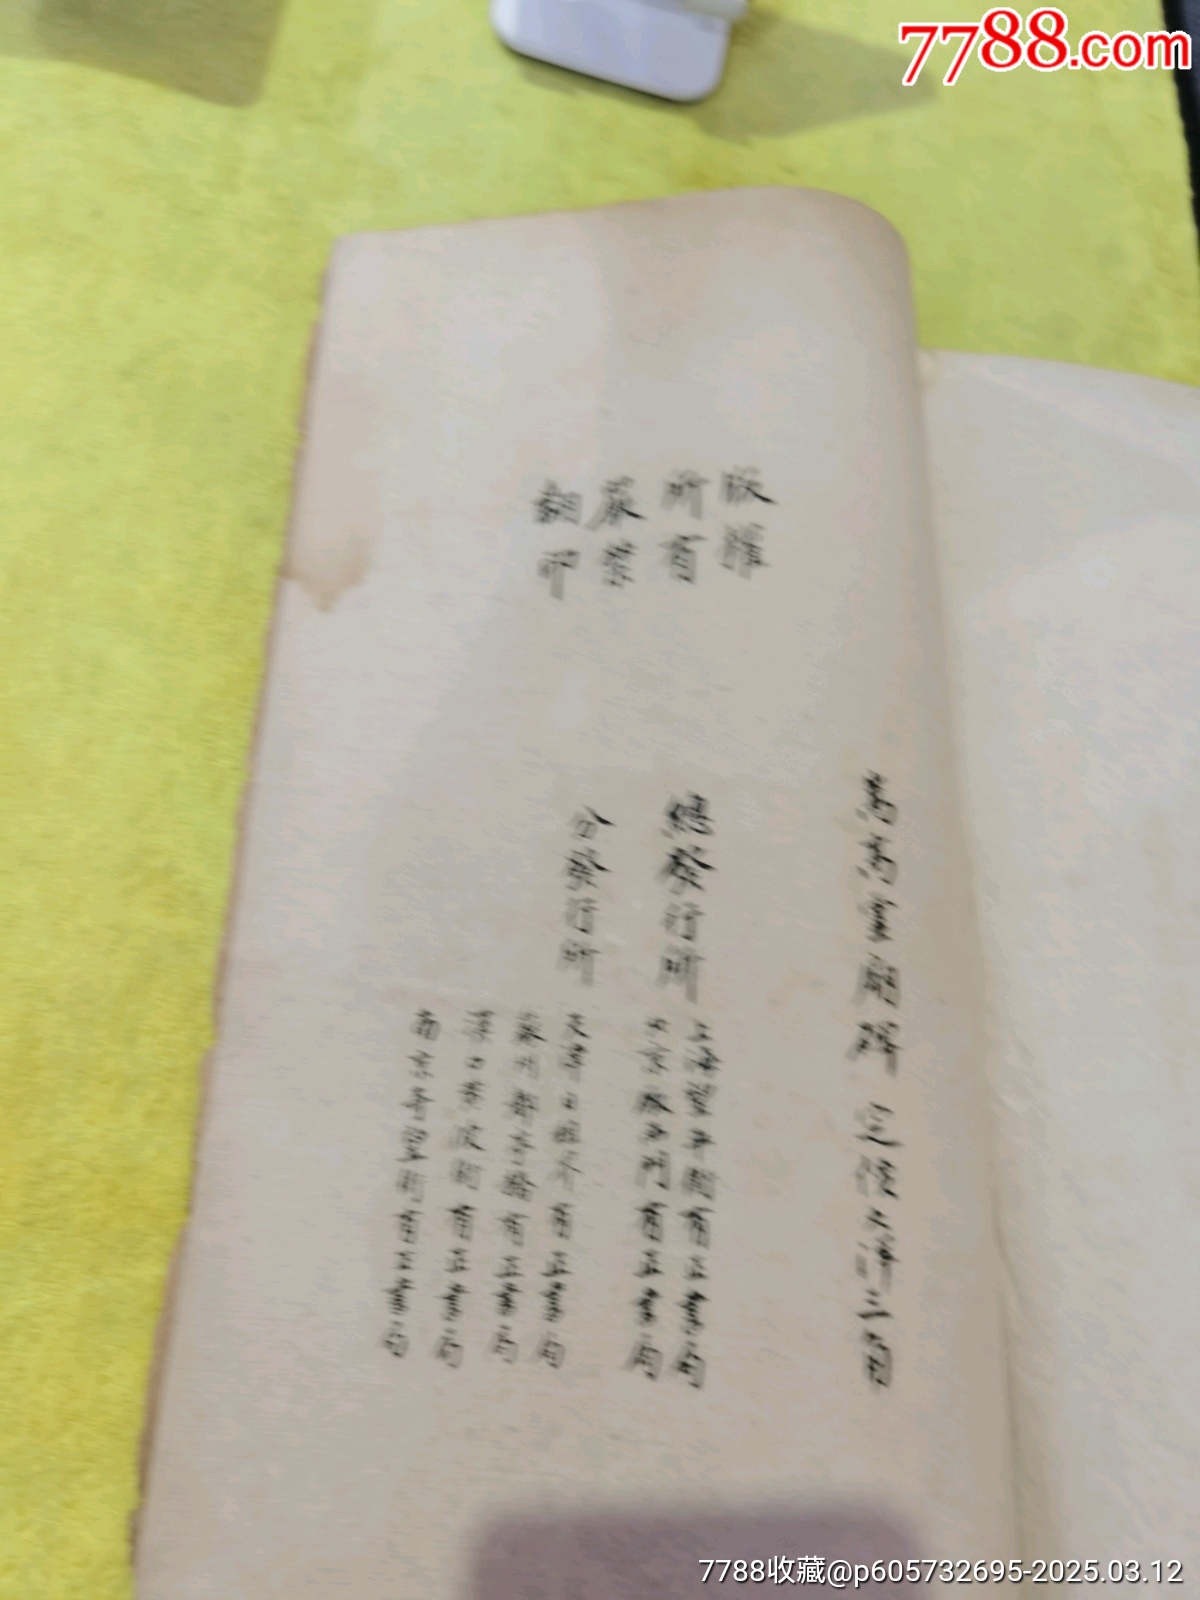 7788.com
版權
所有
嚴禁
翻印
嵩高靈廟碑 定價大洋三角
總發行所
上海望平街有正書局
北京廠西門有正書局
分發行所
天津日租界有正書局
蘇州都亭橋有正書局
漢口黃陂街有正書局
南京奇望街有正書局
7788收藏@p605732695-2025.03.12